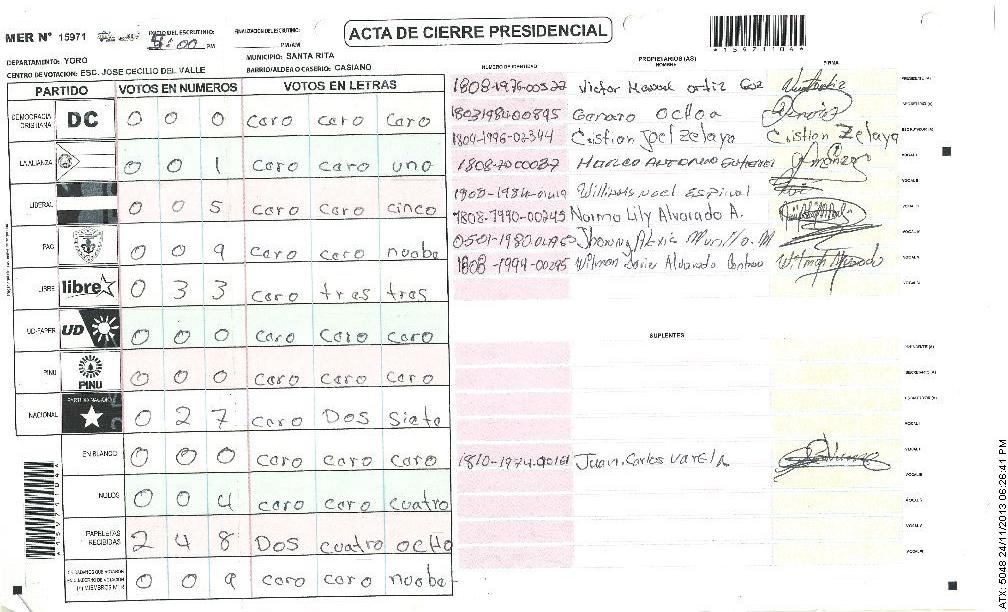 MER Nº 15971
INICIO DEL ESCRUTINIO: 5:00 PM
FINALIZACION DEL ESCRUTINIO: PM/AM
ACTA DE CIERRE PRESIDENCIAL
*15971104*
DEPARTAMENTO: YORO
MUNICIPIO: SANTA RITA
CENTRO DE VOTACION: ESC. JOSE CECILIO DEL VALLE
BARRIO/ALDEA O CASERIO: CASIANO
PARTIDO VOTOS EN NUMEROS VOTOS EN LETRAS
DEMOCRACIA CRISTIANA DC 0 0 0 caro caro caro
LA ALIANZA 0 0 1 caro caro uno
LIBERAL 0 0 5 caro caro cinco
PAC 0 0 9 caro caro nuobe
LIBRE libre 0 3 3 caro tras tras
UD-FAPER UD 0 0 0 caro caro caro
PINU PINU 0 0 0 caro caro caro
NACIONAL PARTIDO NACIONAL 0 2 7 caro Dos siata
EN BLANCO 0 0 0 caro caro caro
NULOS 0 0 4 caro caro cuatro
PAPELETAS RECIBIDAS 2 4 8 Dos cuatro ocho
CIUDADANOS QUE VOTARON EN CUADERNO DE VOTACION (+) MIEMBROS MER 0 0 9 caro caro nuobe
NUMERO DE IDENTIDAD
PROPIETARIOS (AS)
NOMBRE
FIRMA
1808-1976-00522 Victor Manuel ortiz PRESIDENTE (A)
1803198400895 Genaro Ochoa SECRETARIO (A)
1804-1996-02344 Cristian Joel Zelaya Cristian Zelaya ESCRUTADOR (A)
Marco Antonio VOCAL I
Noel Espinal VOCAL II
1808-1990-00245 Norma Lily Alvarado A. VOCAL III
Jhonny Alexis Murillo M VOCAL IV
1808-1994-00295 Wilman Javier Alvarado Wilman Alvarado VOCAL V
VOCAL VI
SUPLENTES
PRESIDENTE (A)
SECRETARIO (A)
ESCRUTADOR (A)
VOCAL I
1810-1974-00161 Juan Carlos Varela
VOCAL II
VOCAL III
VOCAL IV
VOCAL V
VOCAL VI
ATX: 5048 24/11/2013 06:26:41 PM